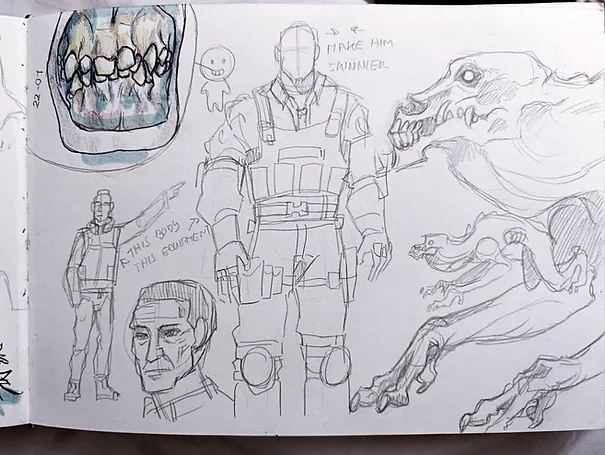 22-01
MAKE HIM
SKINNIER
THIS BODY
THIS EQUIPMENT